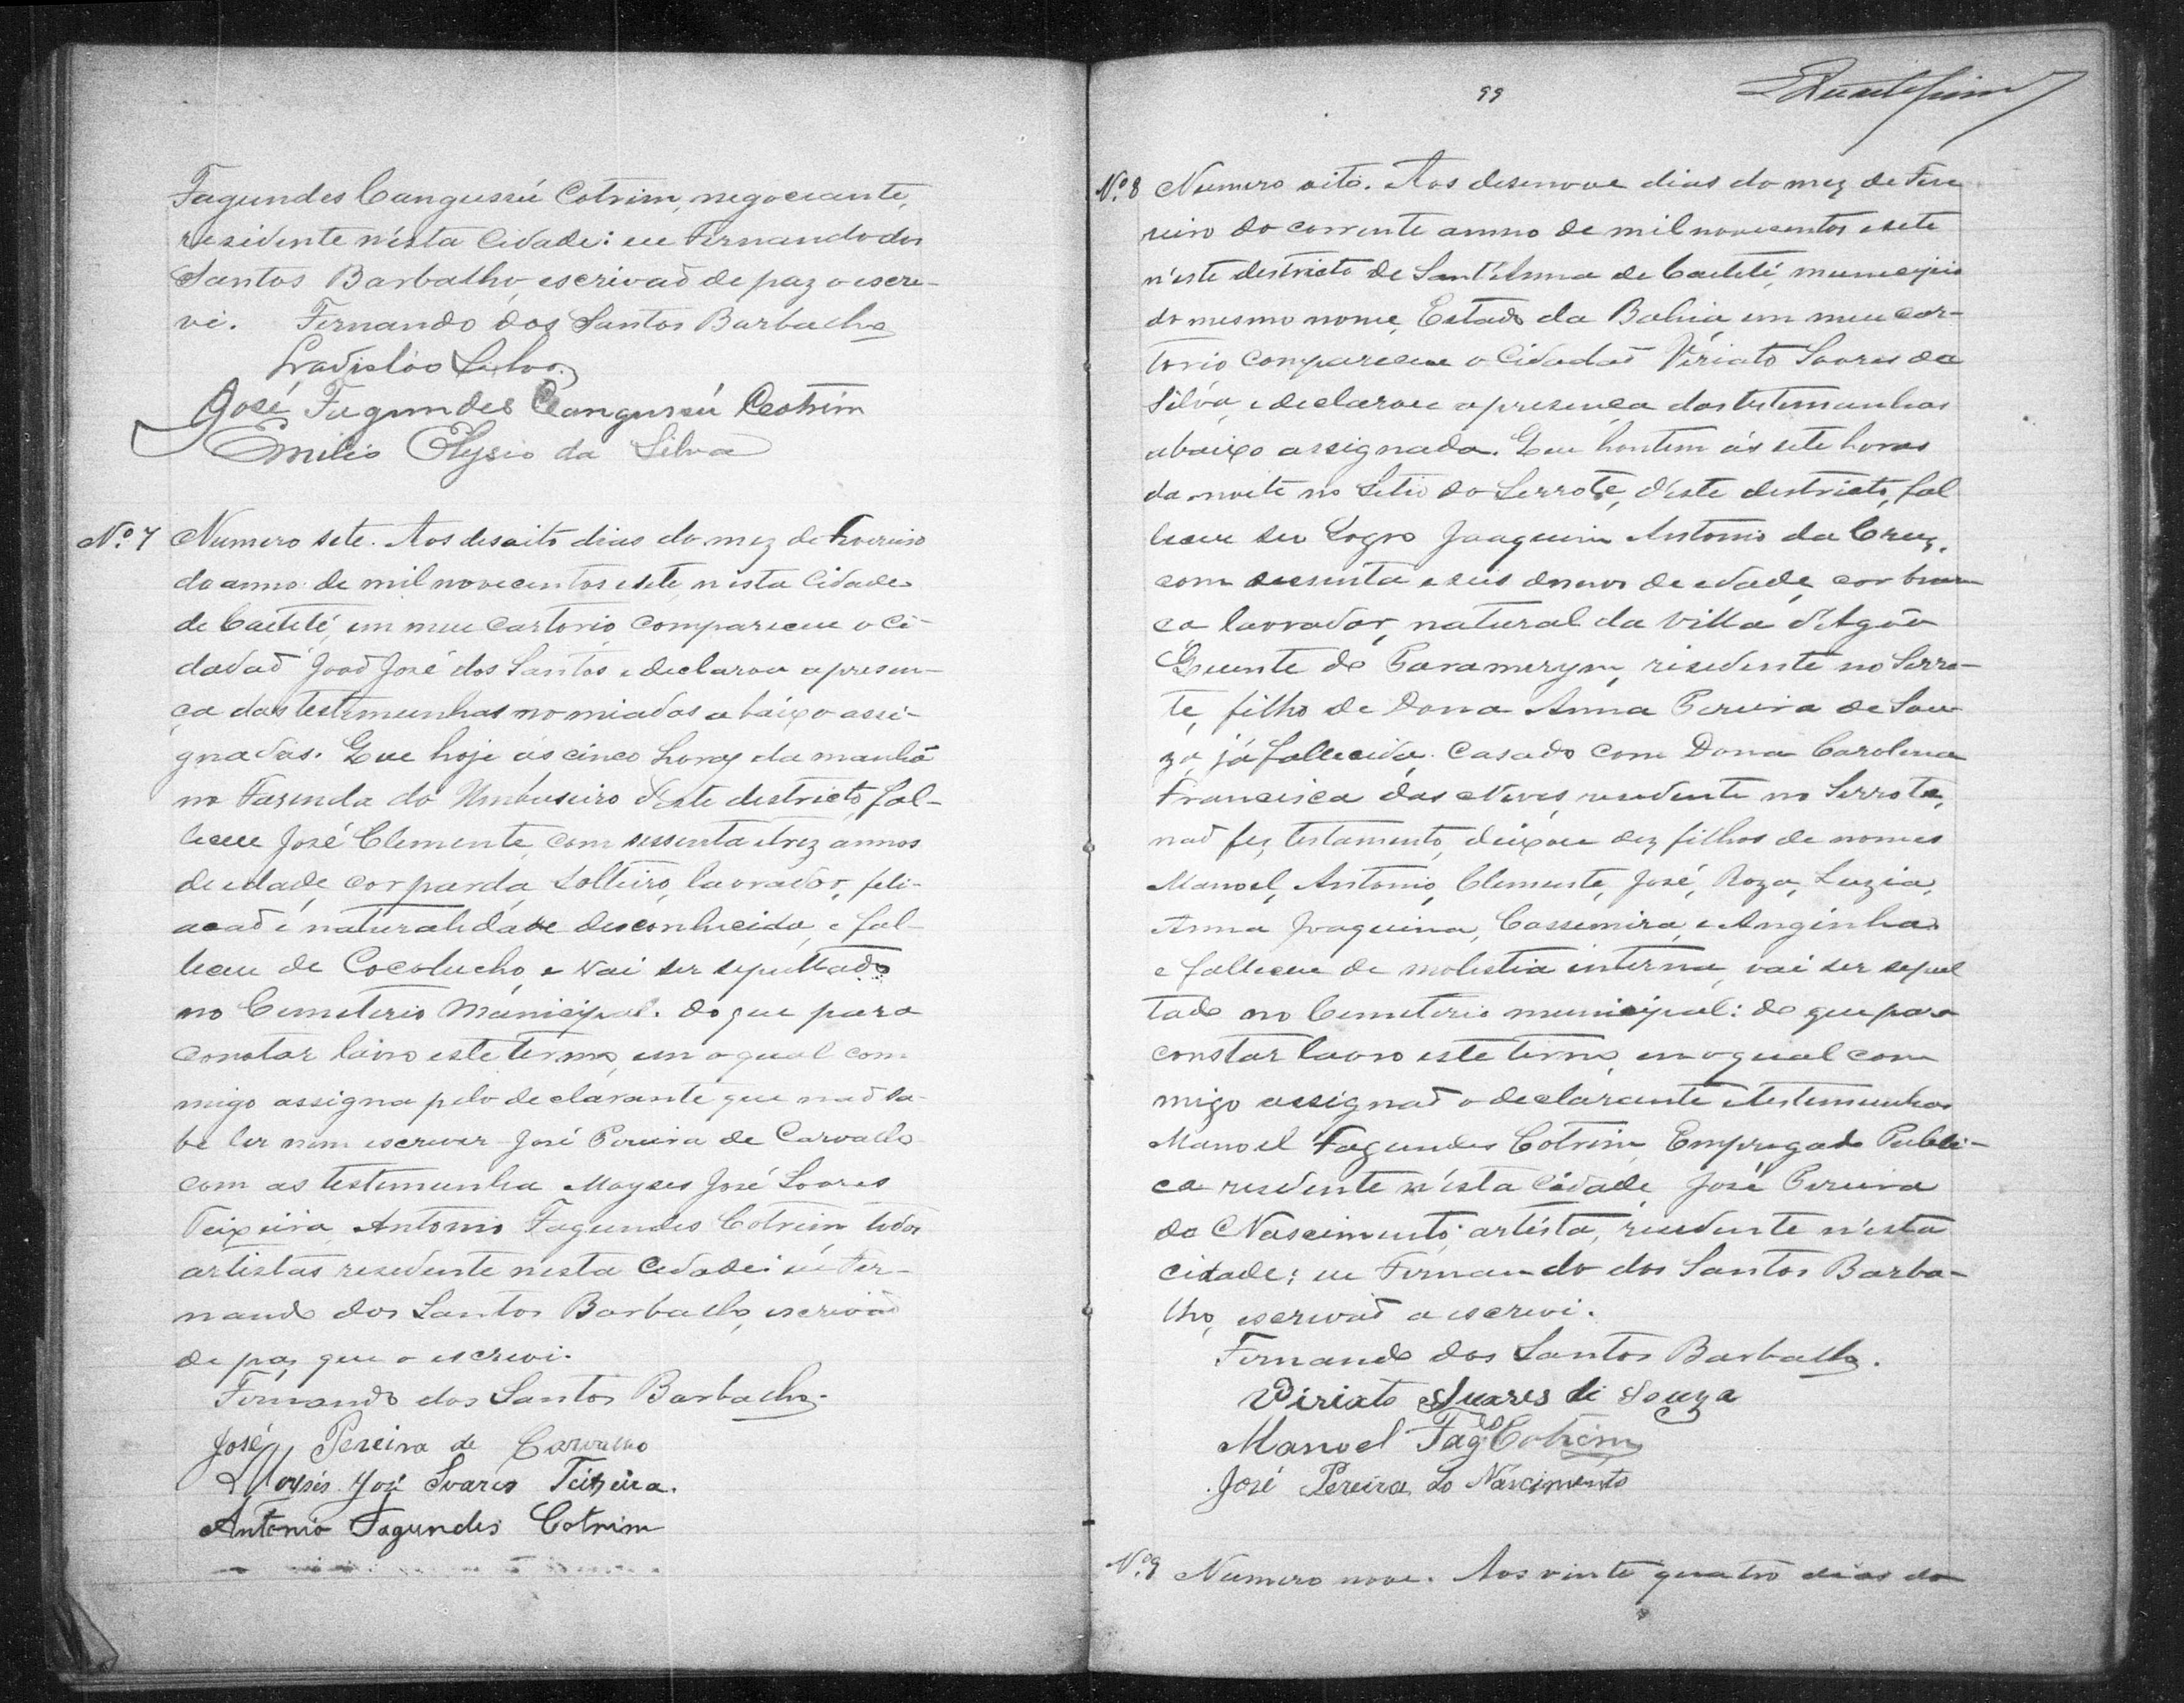 Fagundes Cangussú Cotrim, negociante,
residente n'ésta Cidade: eu Fernando dos
Santos Barbalho, escrivaõ de paz o escre-
vi. Fernando dos Santos Barbalho
Ladisláo Silva
José Fagundes Cangussú Cotrim
Emilio Elysio da Silva
Nº 7 Numero sete. Aos desoito dias do mez de Fevereiro
do anno de mil novecentos e sete, n'ésta Cidade
de Caeteté, em meu Cartorio compareceu o Ci-
dadaõ Joaõ José dos Santos e declarou a presen-
ça das testemunhas nomiadas abáixo assi-
gnadas. Que hoje ás cinco horas da manhã
na Fasenda do Umbuseiro d'este destricto, fal-
leceu José Clemente, com sessenta e trez annos
de edade, cor parda, solteiro, lavrador, fili-
acaõ é naturalidade desconhecida, e fal-
leceu de Cocolucho, e vai ser sepultado
no Cemeterio Municipal. do que para
constar lavro este termo, em o qual com
migo assigna pelo declarante que naõ sa-
be ler nem escrever José Pereira de Carvalho
com as testemunha Moyses José Soares
Teixeira, Antonio Fagundes Cotrim, todos
artistas resedente nesta Cidade: eu Fer-
nando dos Santos Barbalho, escrivaõ
de paz que o escrevi.
Fernando dos Santos Barbalho.
José Pereira de Carvalho
Moysés José Soares Teixeira.
Antonio Fagundes Cotrim
99
Nº 8 Numero oito. Aos desenove dias do mez de Feve
reiro do corrente anno de mil novecentos e sete
n'este destricto de Sant'Anna de Caeteté, municipio
do mesmo nome, Estado da Bahia, em meu car-
torio compareceu o Cidadaõ Viriato Soares da
Silva, e declarou a presença das testemunhas
abaixo assignada. Que hontem ás sete horas
da noite no Sitio do Serrote, d'este destricto, fal
leceu seu Sogro Joaquim Antonio da Cruz,
com sessenta e seis annos de edade, cor bran
ca lavrador, natural da Villa d'Agôa
Quente de Paramerym, residente no Serro-
te, filho de Dona Anna Pereira de Sou
za já fallecida. Casado com Dona Carolina
Francisca das Neves, resedente no Serrote,
naõ fez testamento, deixou dez filhos de nomes
Manoel, Antonio, Clemente, José, Roza, Luzia,
Anna Joaquina, Cassemira, e Anginha
e falleceu de molestia interna, vai ser sepul
tado no Cemeterio municipal: do que para
constar lavro este termo, em o qual com
migo assignaõ o declarante e testemunhas
Manoel Fagundes Cotrim, Empregado Publi-
co resedente n'ésta Cidade, José Pereira
do Nascimento, artista, resedente n'ésta
cidade: eu Fernando dos Santos Barba-
lho, escrivaõ o escrevi.
Fernando dos Santos Barbalho.
Viriato Suares de Souza
Manoel Fagdes Cotrim
José Pereira do Nascimento
Nº 9 Numero nove. Aos vinte quatro dias do